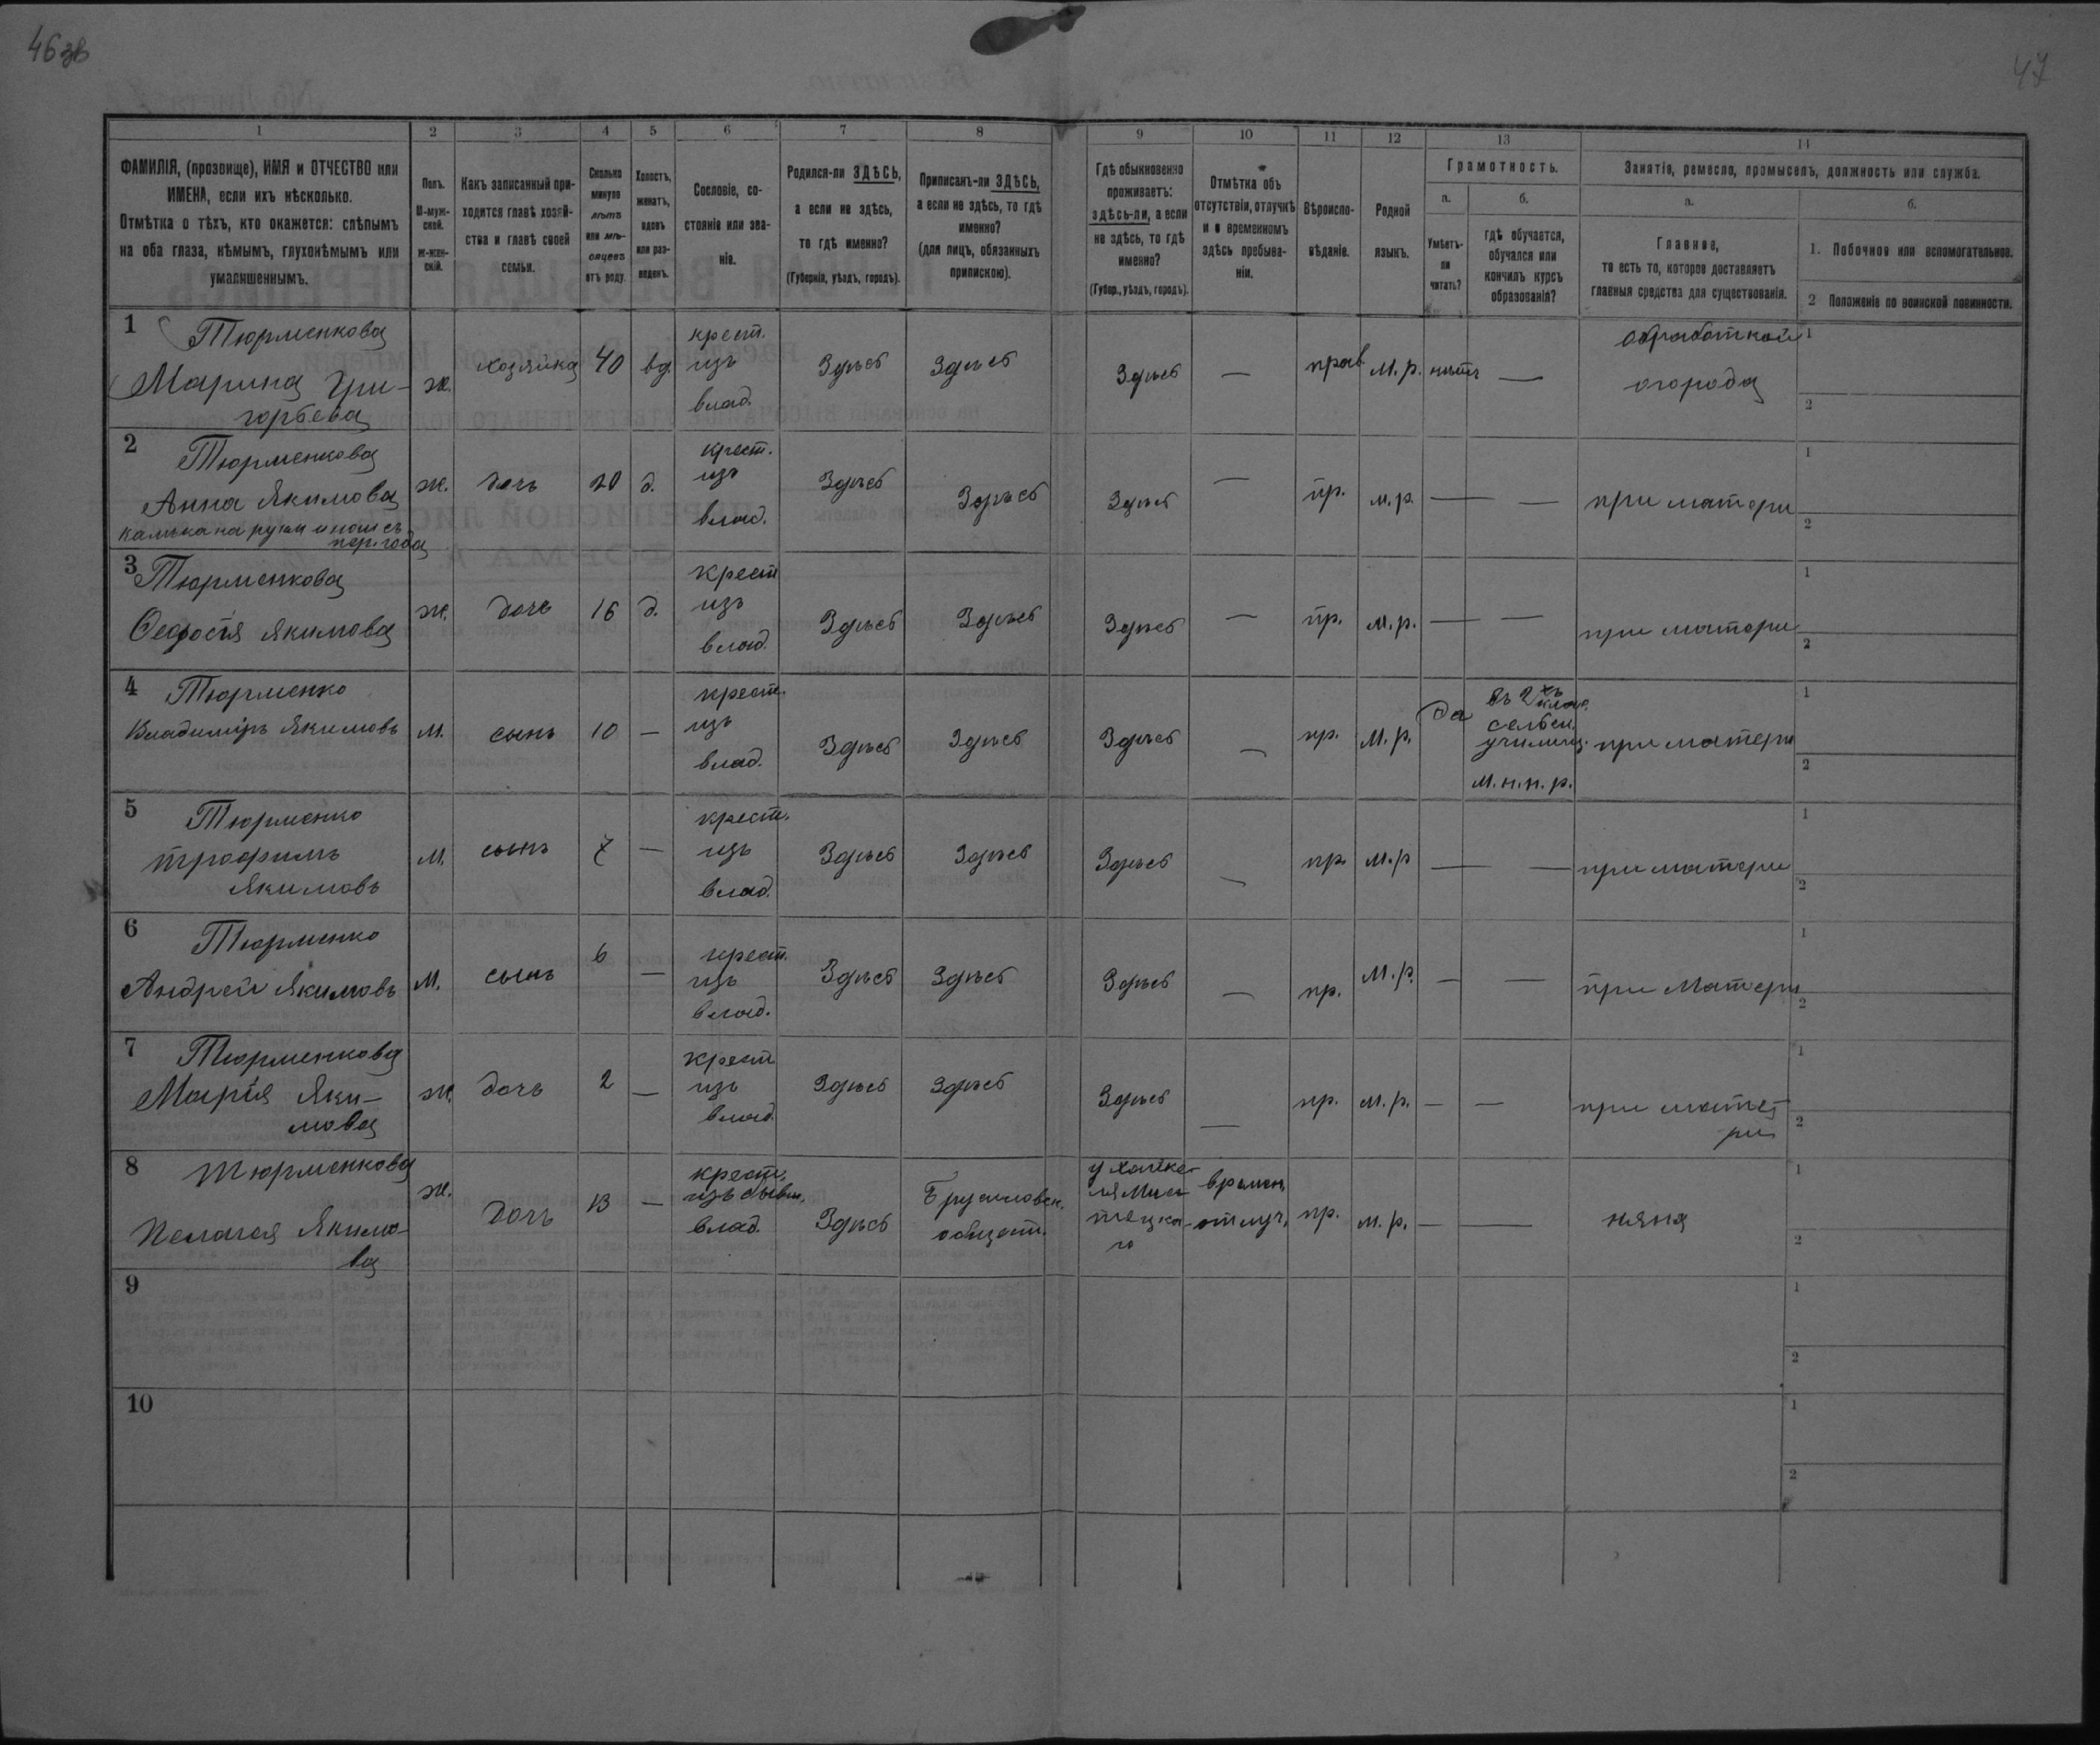 46зв
47
1 2 3 4 5 6 7 8 9 10 11 12 13 14
ФАМИЛІЯ, (прозвище), ИМЯ и ОТЧЕСТВО или
ИМЕНА, если ихъ нѣсколько.
Отмѣтка о тѣхъ, кто окажется: слѣпымъ
на оба глаза, нѣмымъ, глухонѣмымъ или
умалишеннымъ.
Полъ.
М-муж-
ской.
Ж-жен-
скій.
Какъ записанный при-
ходится главѣ хозяй-
ства и главѣ своей
семьи.
Сколько
минуло
лѣтъ
или мѣ-
сяцевъ
отъ роду.
Холостъ,
женатъ,
вдовъ
или раз-
веденъ.
Сословіе, со-
стояніе или зва-
ніе.
Родился-ли ЗДѢСЬ,
а если не здѣсь,
то гдѣ именно?
(Губернія, уѣздъ, городъ).
Приписанъ-ли ЗДѢСЬ,
а если не здѣсь, то гдѣ
именно?
(для лицъ, обязанныхъ
припискою).
Гдѣ обыкновенно
проживаетъ:
здѣсь-ли, а если
не здѣсь, то гдѣ
именно?
(Губер., уѣздъ, городъ).
Отмѣтка объ
отсутствіи, отлучкѣ
и о временномъ
здѣсь пребыва-
ніи.
Вѣроиспо-
вѣданіе.
Родной
языкъ.
Грамотность.
а.
Умѣетъ-
ли
читать?
б.
гдѣ обучается,
обучался или
кончилъ курсъ
образованія?
Занятіе, ремесло, промыселъ, должность или служба.
а.
Главное,
то есть то, которое доставляетъ
главныя средства для существованія.
б.
1. Побочное или вспомогательное.
2 Положеніе по воинской повинности.
1 Тюрменкова
Марина Гри-
горьева
ж.
хозяйка
40
вд.
крест.
изъ
влад.
Здѣсь
Здѣсь
Здѣсь
—
прав
м.р.
нѣтъ
—
обработкой
огорода
1
2
2 Тюрменкова
Анна Якимова
калѣка на руки и ноги съ
пер. года
ж.
дочь
20
д.
крест.
изъ
влад.
Здѣсь
Здѣсь
Здѣсь
—
пр.
м.р.
—
—
при матери
1
2
3 Тюрменкова
Ѳеодосія Якимова
ж.
дочь
16
д.
крест
изъ
влад.
Здѣсь
Здѣсь
Здѣсь
—
пр.
м.р.
—
—
при матери
1
2
4 Тюрменко
Владиміръ Якимовъ
м.
сынъ
10
—
крест.
изъ
влад.
Здѣсь
Здѣсь
Здѣсь
—
пр.
м.р.
да
въ 2хъ клас.
сельск.
училищ.
м.н.п.р.
при матери
1
2
5 Тюрменко
Трофимъ
Якимовъ
м.
сынъ
7
—
крест.
изъ
влад.
Здѣсь
Здѣсь
Здѣсь
—
пр.
м.р
—
—
при матери
1
2
6 Тюрменко
Андрей Якимовъ
м.
сынъ
6
—
крест.
изъ
влад.
Здѣсь
Здѣсь
Здѣсь
—
пр.
м.р.
—
—
при матери
1
2
7 Тюрменкова
Марія Яки-
мова
ж.
дочь
2
—
крест
изъ
влад.
Здѣсь
Здѣсь
Здѣсь
—
пр.
м.р.
—
—
при мате-
ри
1
2
8 Тюрменкова
Пелагея Якимо-
ва
ж.
дочь
13
—
крест.
изъ бывш.
влад.
Здѣсь
Брусиловск.
общест.
времен.
отлуч.
пр.
м.р.
—
—
няня
1
2
9
1
2
10
1
2